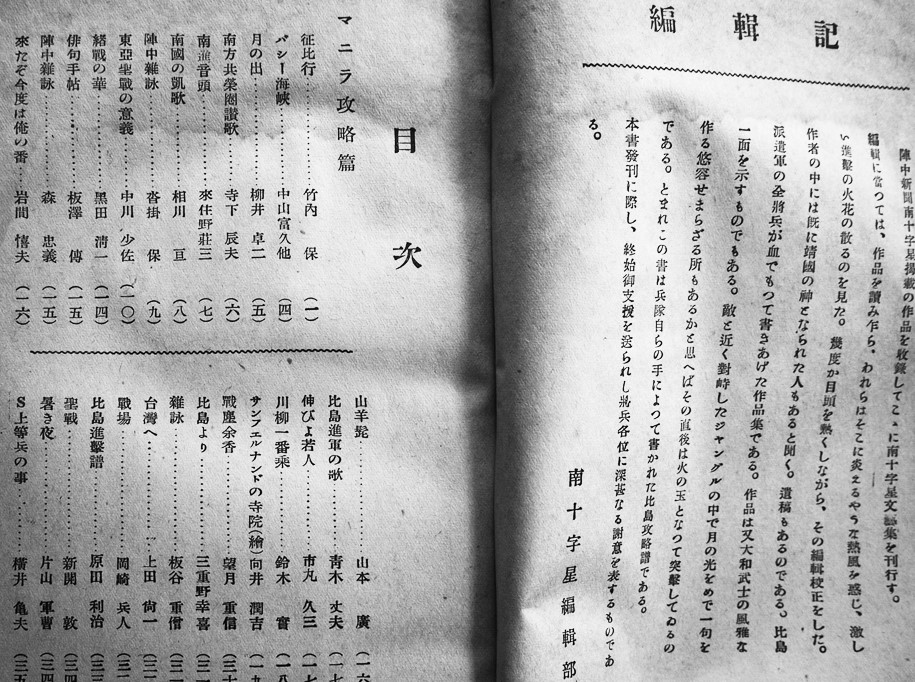 編輯記
陣中新聞南十字星掲載の作品を收録してこゝに南十字星文藝集を刊行す。
編輯に當つては、作品を讀み乍ら、われらはそこに炎えるやうな熱風を感じ、激し
い進擊の火花の散るのを見た。幾度か目頭を熱くしながら、その編輯校正をした。
作者の中には既に靖國の神となられた人もあると聞く。遺稿もあるのである。比島
派遣軍の全將兵が血でもつて書きあげた作品集である。作品は又大和武士の風雅な
一面を示すものでもある。敵と近く對峙したジャングルの中で月の光をめで一句を
作る悠容せまらざる所もあるかと思へばその直後は火の玉となつて突擊してゐるの
である。とまれこの書は兵隊自らの手によつて書かれた比島攻略譜である。
本書發刊に際し、終始御支援を送られし將兵各位に深甚なる謝意を表するものであ
る。
南十字星編輯部
目次
マニラ攻略篇
征比行……竹內 保(一)
バシー海峽……中山富久他(四)
月の出……柳井 卓二(五)
南方共榮圈讃歌……寺下 辰夫(六)
南進音頭……來住野莊三(七)
南國の凱歌……相川 亘(八)
陣中雜詠……沓掛 保(九)
東亞聖戰の意義……中川 少佐(一〇)
緒戰の華……黑田 淸一(一四)
俳句手帖……板澤 傳(一五)
陣中雜詠……森 忠義(一五)
來たぞ今度は俺の番……岩間 憘夫(一六)
山羊髭……山本 廣(一六
比島進軍の歌……靑木 丈夫(一七
伸びよ若人……市丸 久三(一七
川柳一番乘……鈴木 實(一八
サンフエルナンドの寺院(繪)向井 潤吉(一九
戰塵余香……望月 重信(三十
比島より……三重野幸喜(三
雜詠……板谷 重僧(三
台灣へ……上田 尙一(三
戰場……岡崎 兵人(三
比島進擊譜……原田 利治(三
聖戰……新開 敦(三四
暑き夜……片山 軍曹(三四
S上等兵の事……横井 亀夫(三五